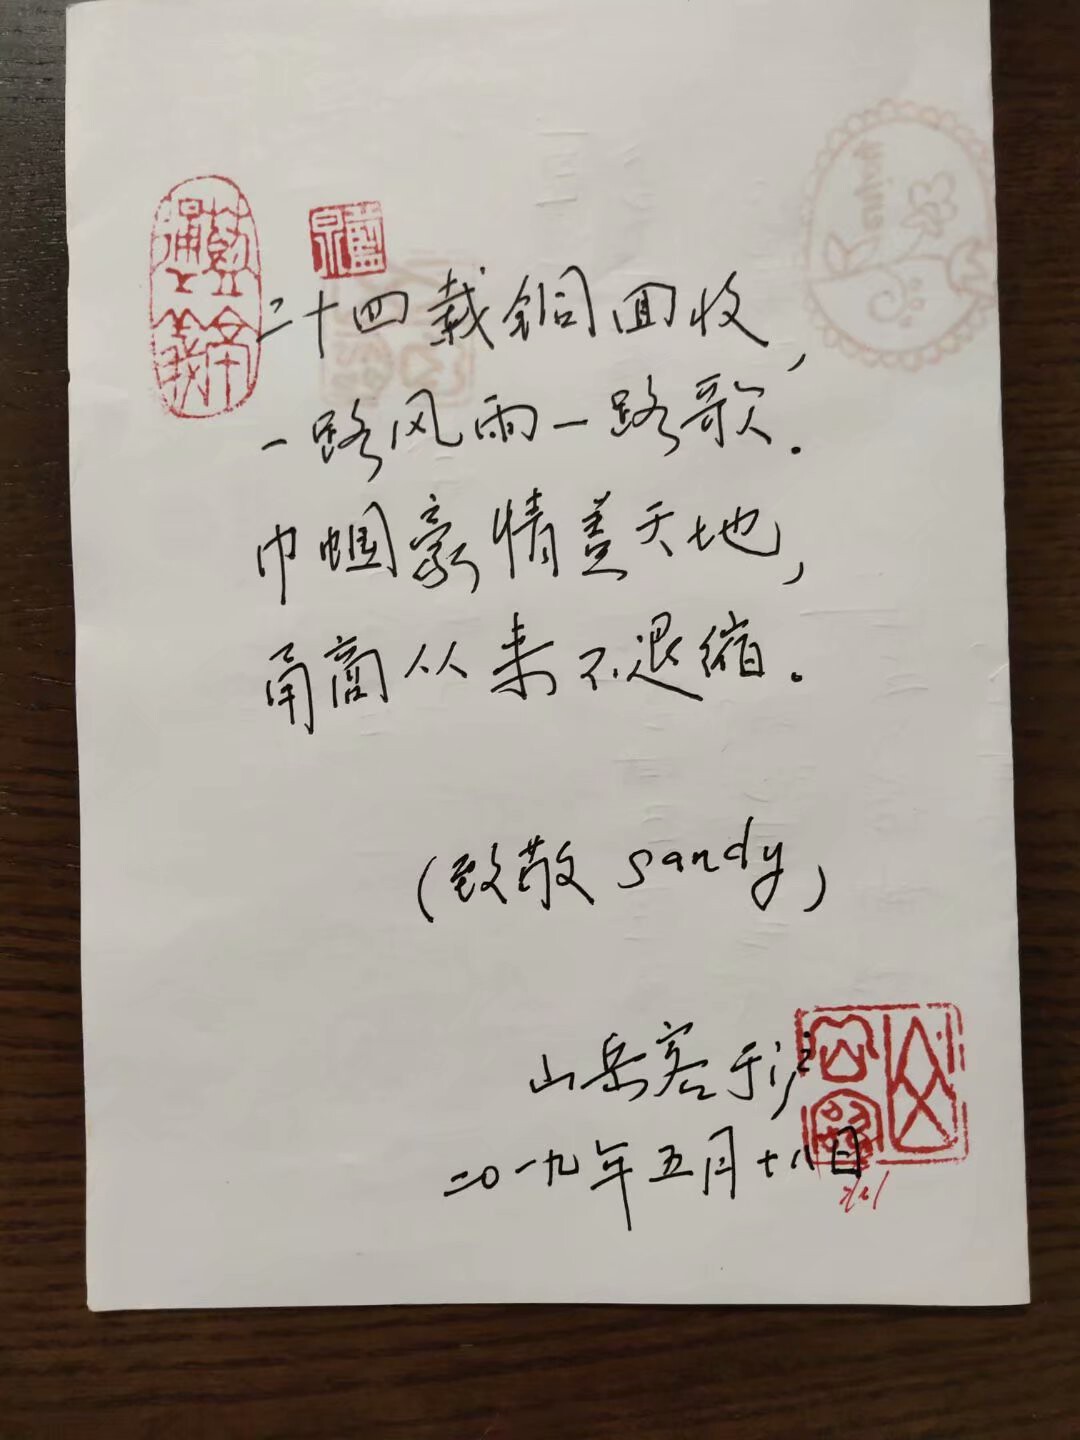 二十四载铜回收，
一路风雨一路歌．
巾帼豪情盖天地，
甬商从来不退缩．
（致敬 sandy）
山岳客于沪
二0一九年五月十八日